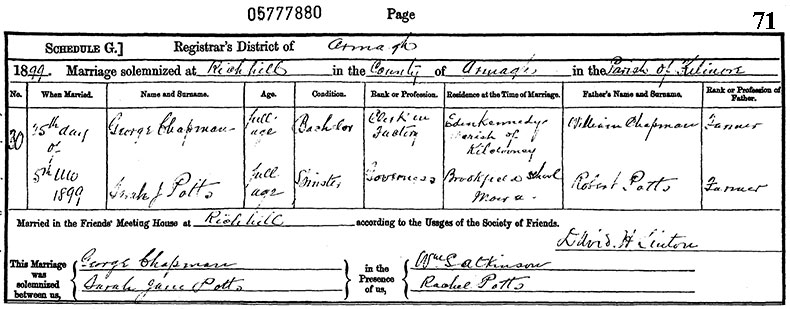 05777880 Page 71
SCHEDULE G.] Registrar's District of Armagh
1899. Marriage solemnized at Richhill in the County of Armagh in the Parish of Kilmore
No. When Married. Name and Surname. Age. Condition. Rank or Profession. Residence at the Time of Marriage. Father's Name and Surname. Rank or Profession of Father.
30 25th day of 5th Mo 1899
George Chapman full age Bachelor Clerk in Factory Edenkennedy Parish of William Chapman Farmer
Sarah J Potts full age Spinster Governess Brookfield School Moira Robert Potts Farmer
Married in the Friends' Meeting House at Richhill according to the Usages of the Society of Friends.
David H Sinton
This Marriage was solemnized between us,
George Chapman
Sarah Jane Potts
in the Presence of us,
Wm S Atkinson
Rachel Potts